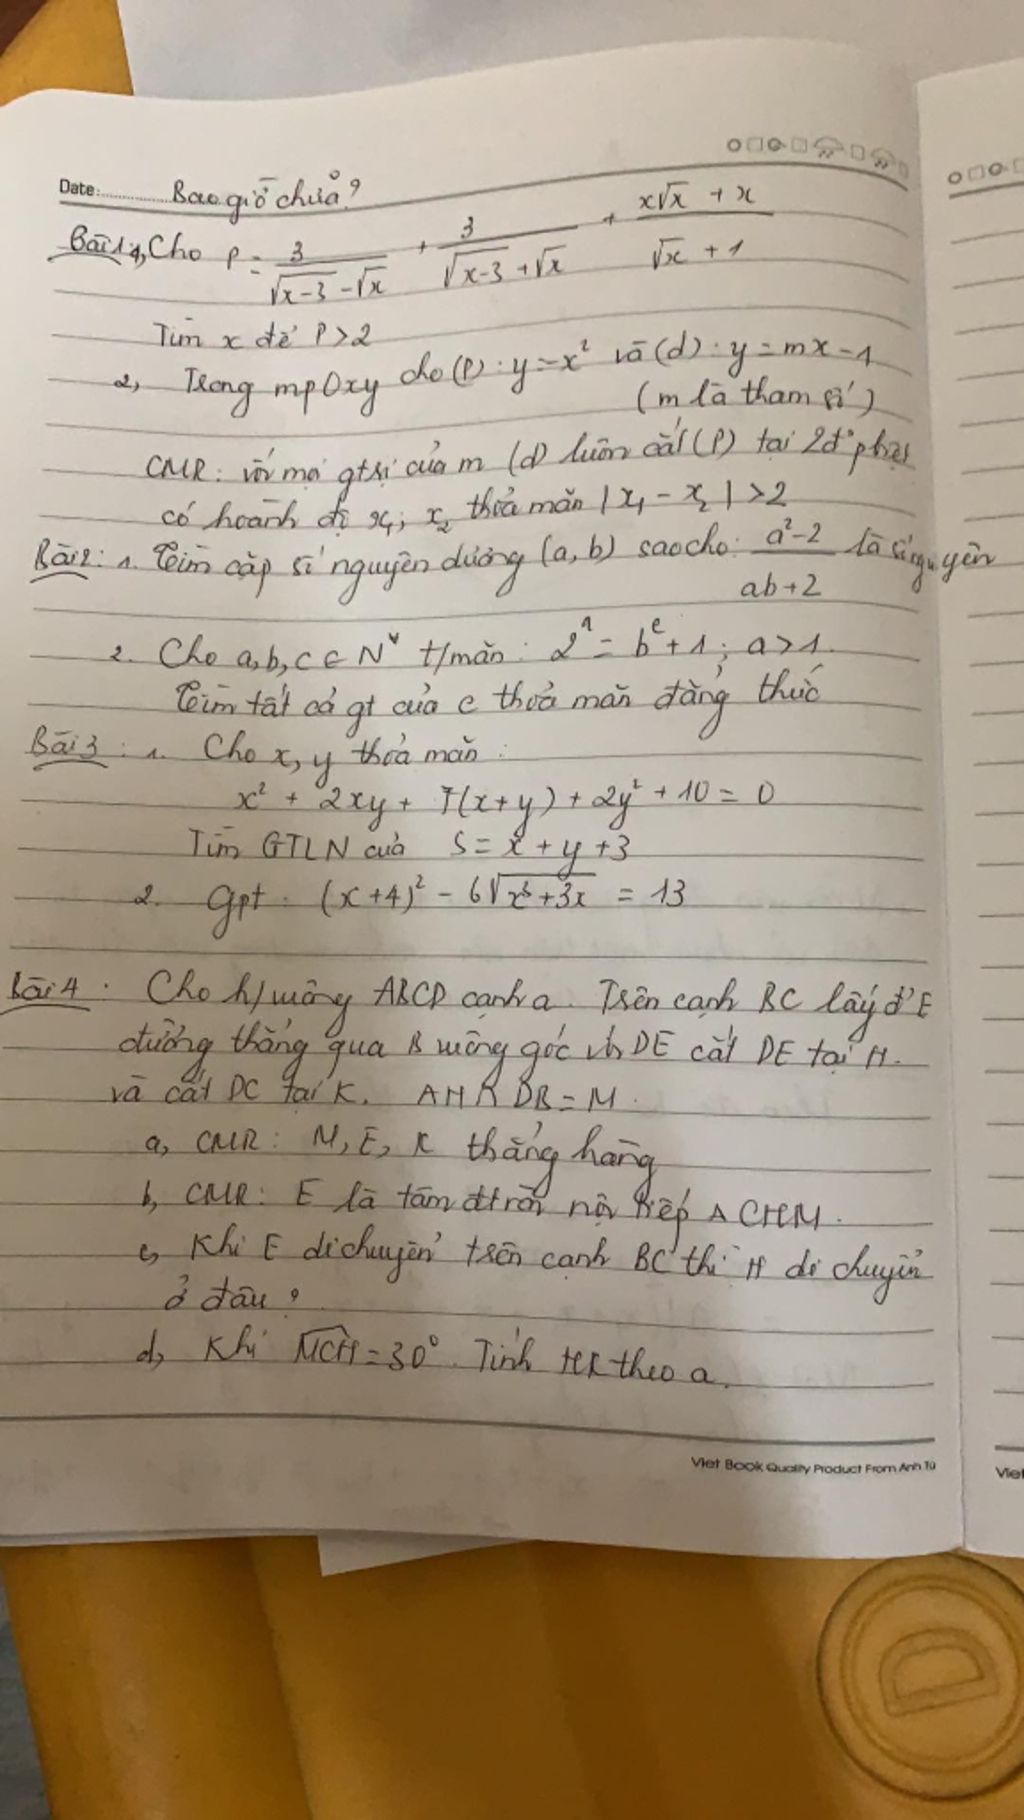 Date: Bao giờ chữa?
Bài 1: 1, Cho P = 3/(√(x-3) - √x) + 3/(√(x-3) + √x) + (x√x + x)/(√x + 1)
Tìm x để P>2
2, Trong mp Oxy cho (P): y = x² và (d): y = mx - 1
(m là tham số)
CMR: với mọi gtrị của m (d) luôn cắt (P) tại 2đ' pbiệt
có hoành độ x₁; x₂ thoả mãn |x₁ - x₂| > 2
Bài 2: 1. Tìm cặp số nguyên dương (a, b) sao cho: (a²-2)/(ab+2) là số nguyên
2. Cho a, b, c ∈ N* t/mãn: 2^a = b^c + 1; a > 1.
Tìm tất cả gt của c thoả mãn đẳng thức
Bài 3: 1. Cho x, y thoả mãn:
x² + 2xy + 7(x+y) + 2y² + 10 = 0
Tìm GTLN của S = x + y + 3
2. Gpt. (x+4)² - 6√(x³+3x) = 13
Bài 4. Cho h/vuông ABCD cạnh a. Trên cạnh BC lấy đ' E
đường thẳng qua B vuông góc với DE cắt DE tại H.
và cắt DC tại K. AH ∩ DB = M.
a, CMR: M, E, K thẳng hàng
b, CMR: E là tâm đtròn nội tiếp Δ CHM.
c, Khi E di chuyển trên cạnh BC thì H di chuyển
ở đâu?
d, Khi MCH = 30°. Tính HK theo a.
Viet Book Quality Product From Anh Tú
Viet